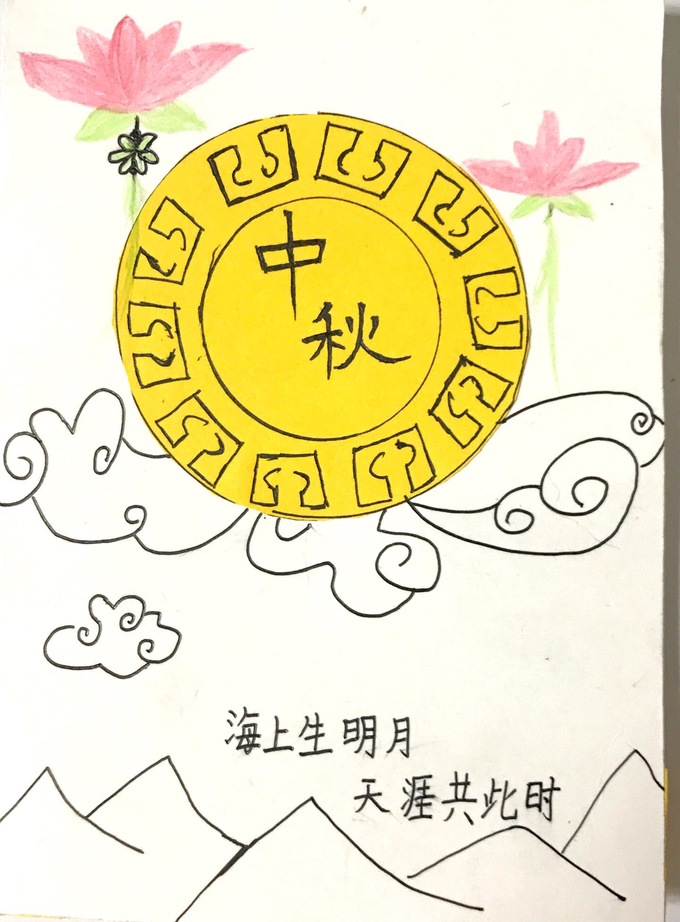 中
秋
海上生明月
天涯共此时